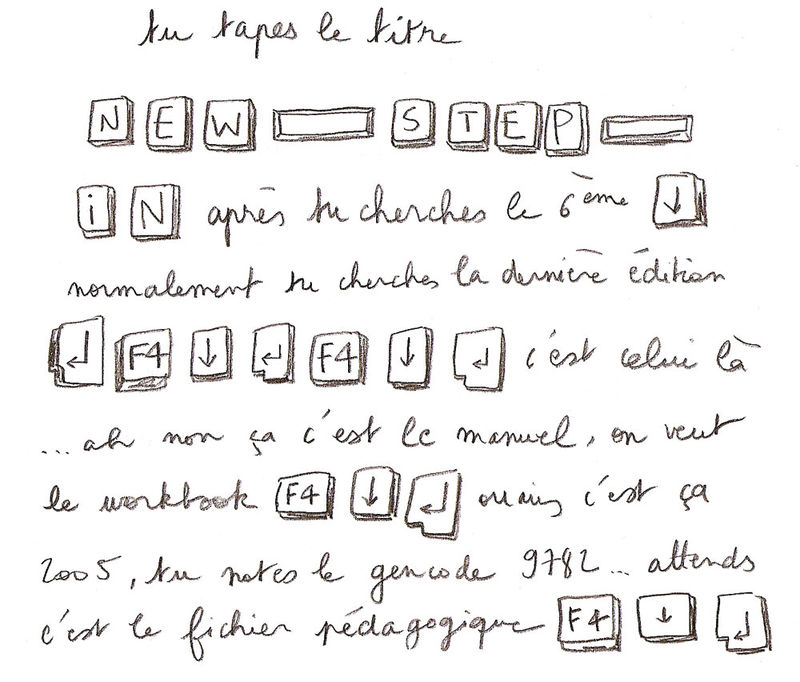 tu tapes le titre
N E W S T E P
i N après tu cherches le 6ème ↓
normalement tu cherches la dernière édition
↵ F4 ↓ ↵ F4 ↓ ↵ c'est celui là
... ah non ça c'est le manuel, on veut
le workbook F4 ↓ ↵ ouais c'est ça
2005, tu notes le gencode 9782... attends
c'est le fichier pédagogique F4 ↓ ↵